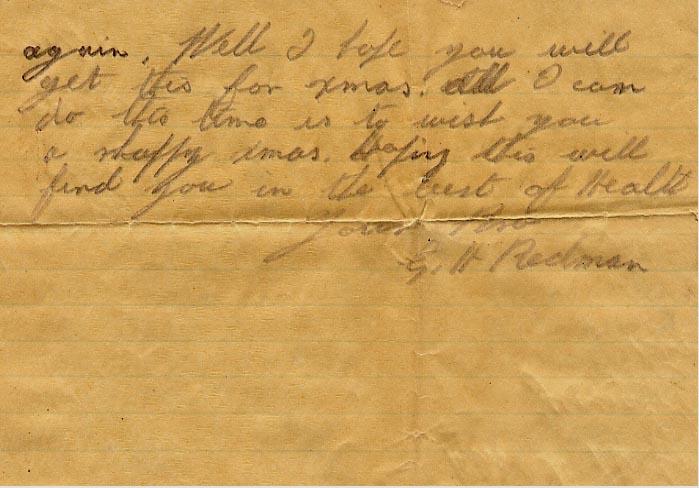 again. Well I hope you will
get this for xmas. All I can
do this time is to wish you
a Happy xmas. Hoping this will
find you in the best of Health
Yours
G. H Redman